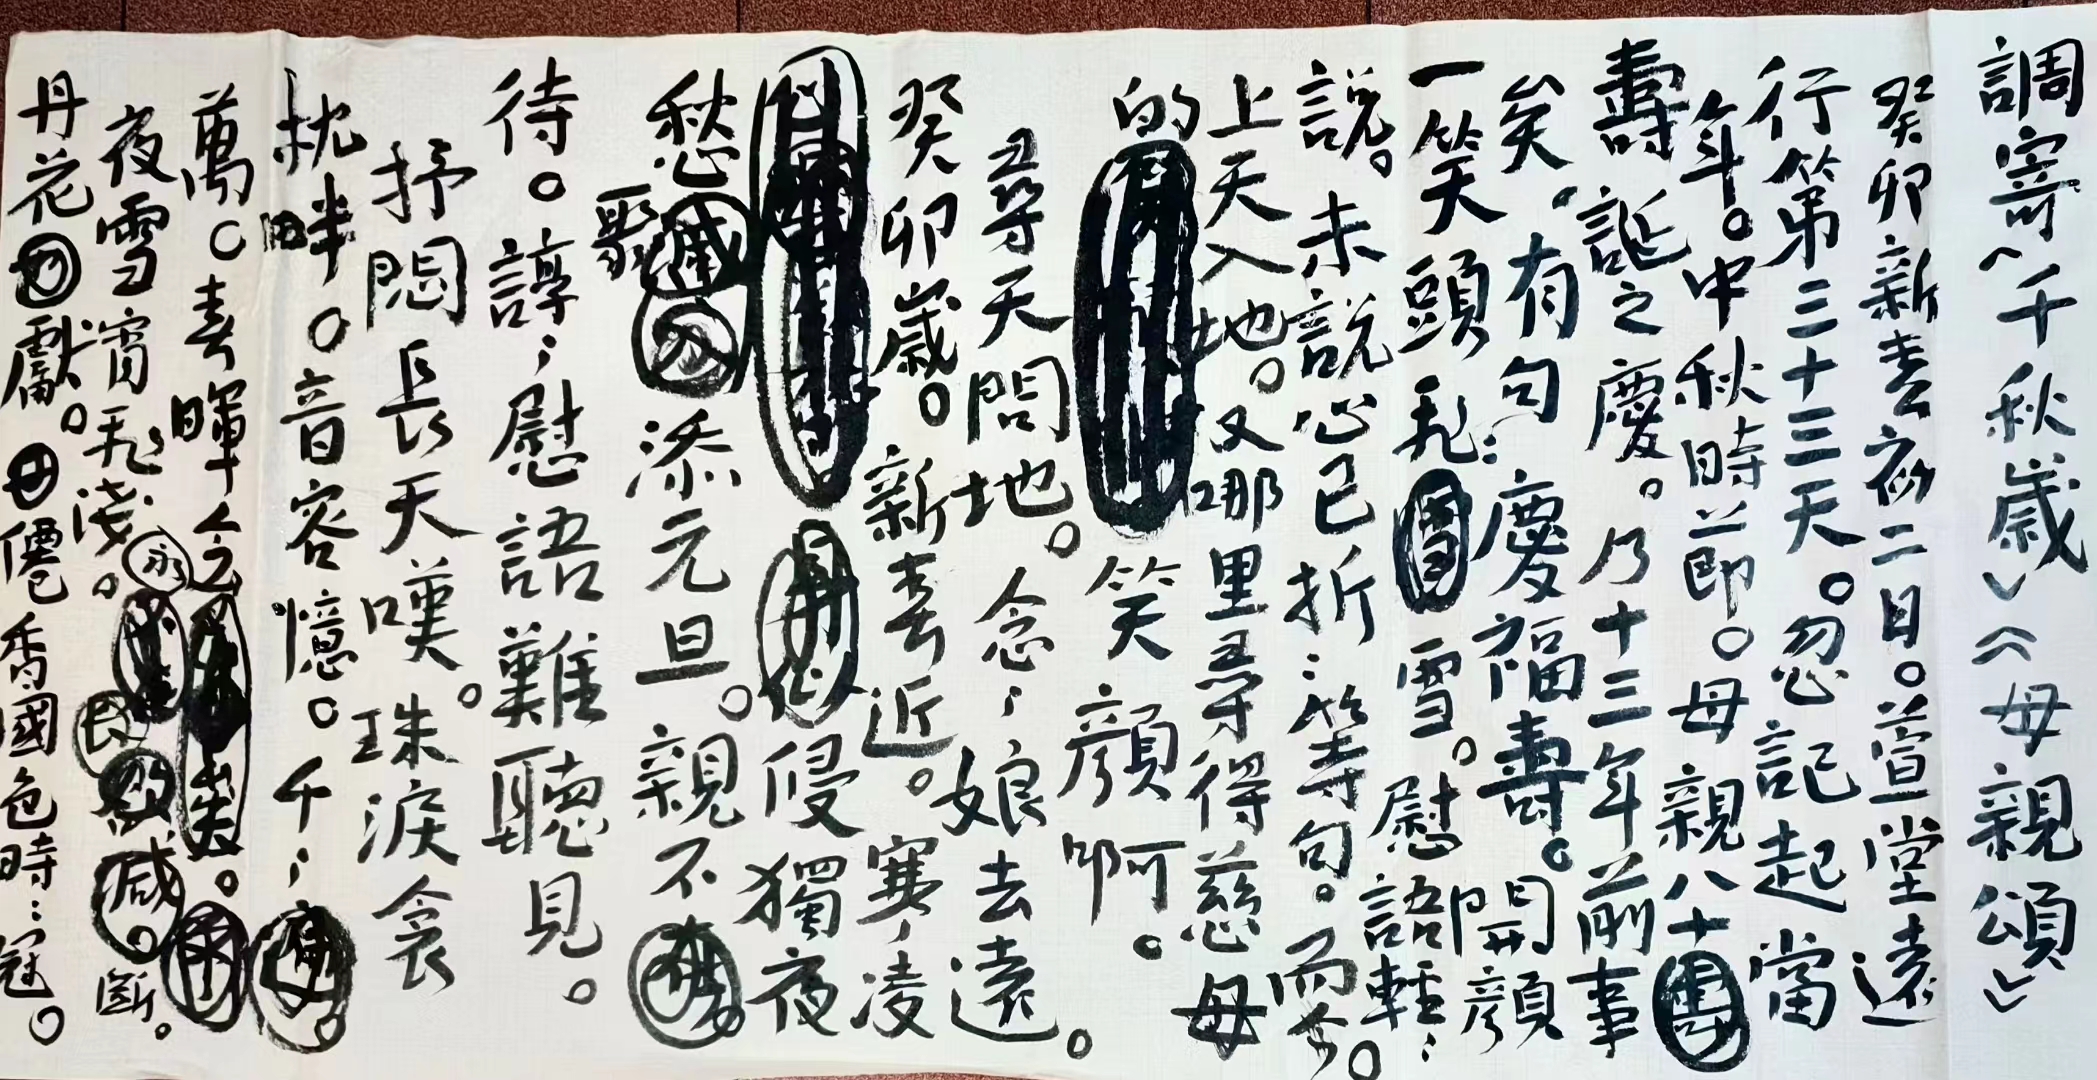 調寄︿千秋歲﹀︽母親頌︾
癸卯新春初二日。萱堂遠
行第三十三天。忽記起當
年。中秋時節。母親八十
壽誕之慶。乃十三年前事
矣。有句：慶福壽。開顏
一笑天頭乳雪。慰語輕：
說。未說心已折：等句。而今。
上天入地。又哪里尋得慈母
的笑顏啊。
尋天問地。念；娘去遠。
癸卯歲。新春近。寒凌
侵獨夜
愁聚添元旦。親不
待。諄；慰語難聽見。
抒悶長天嘆。珠淚衾
枕畔。音容憶。千；
萬。春暉令。
夜雪宵乳淺。永
丹花獻。僊香國色時：冠。